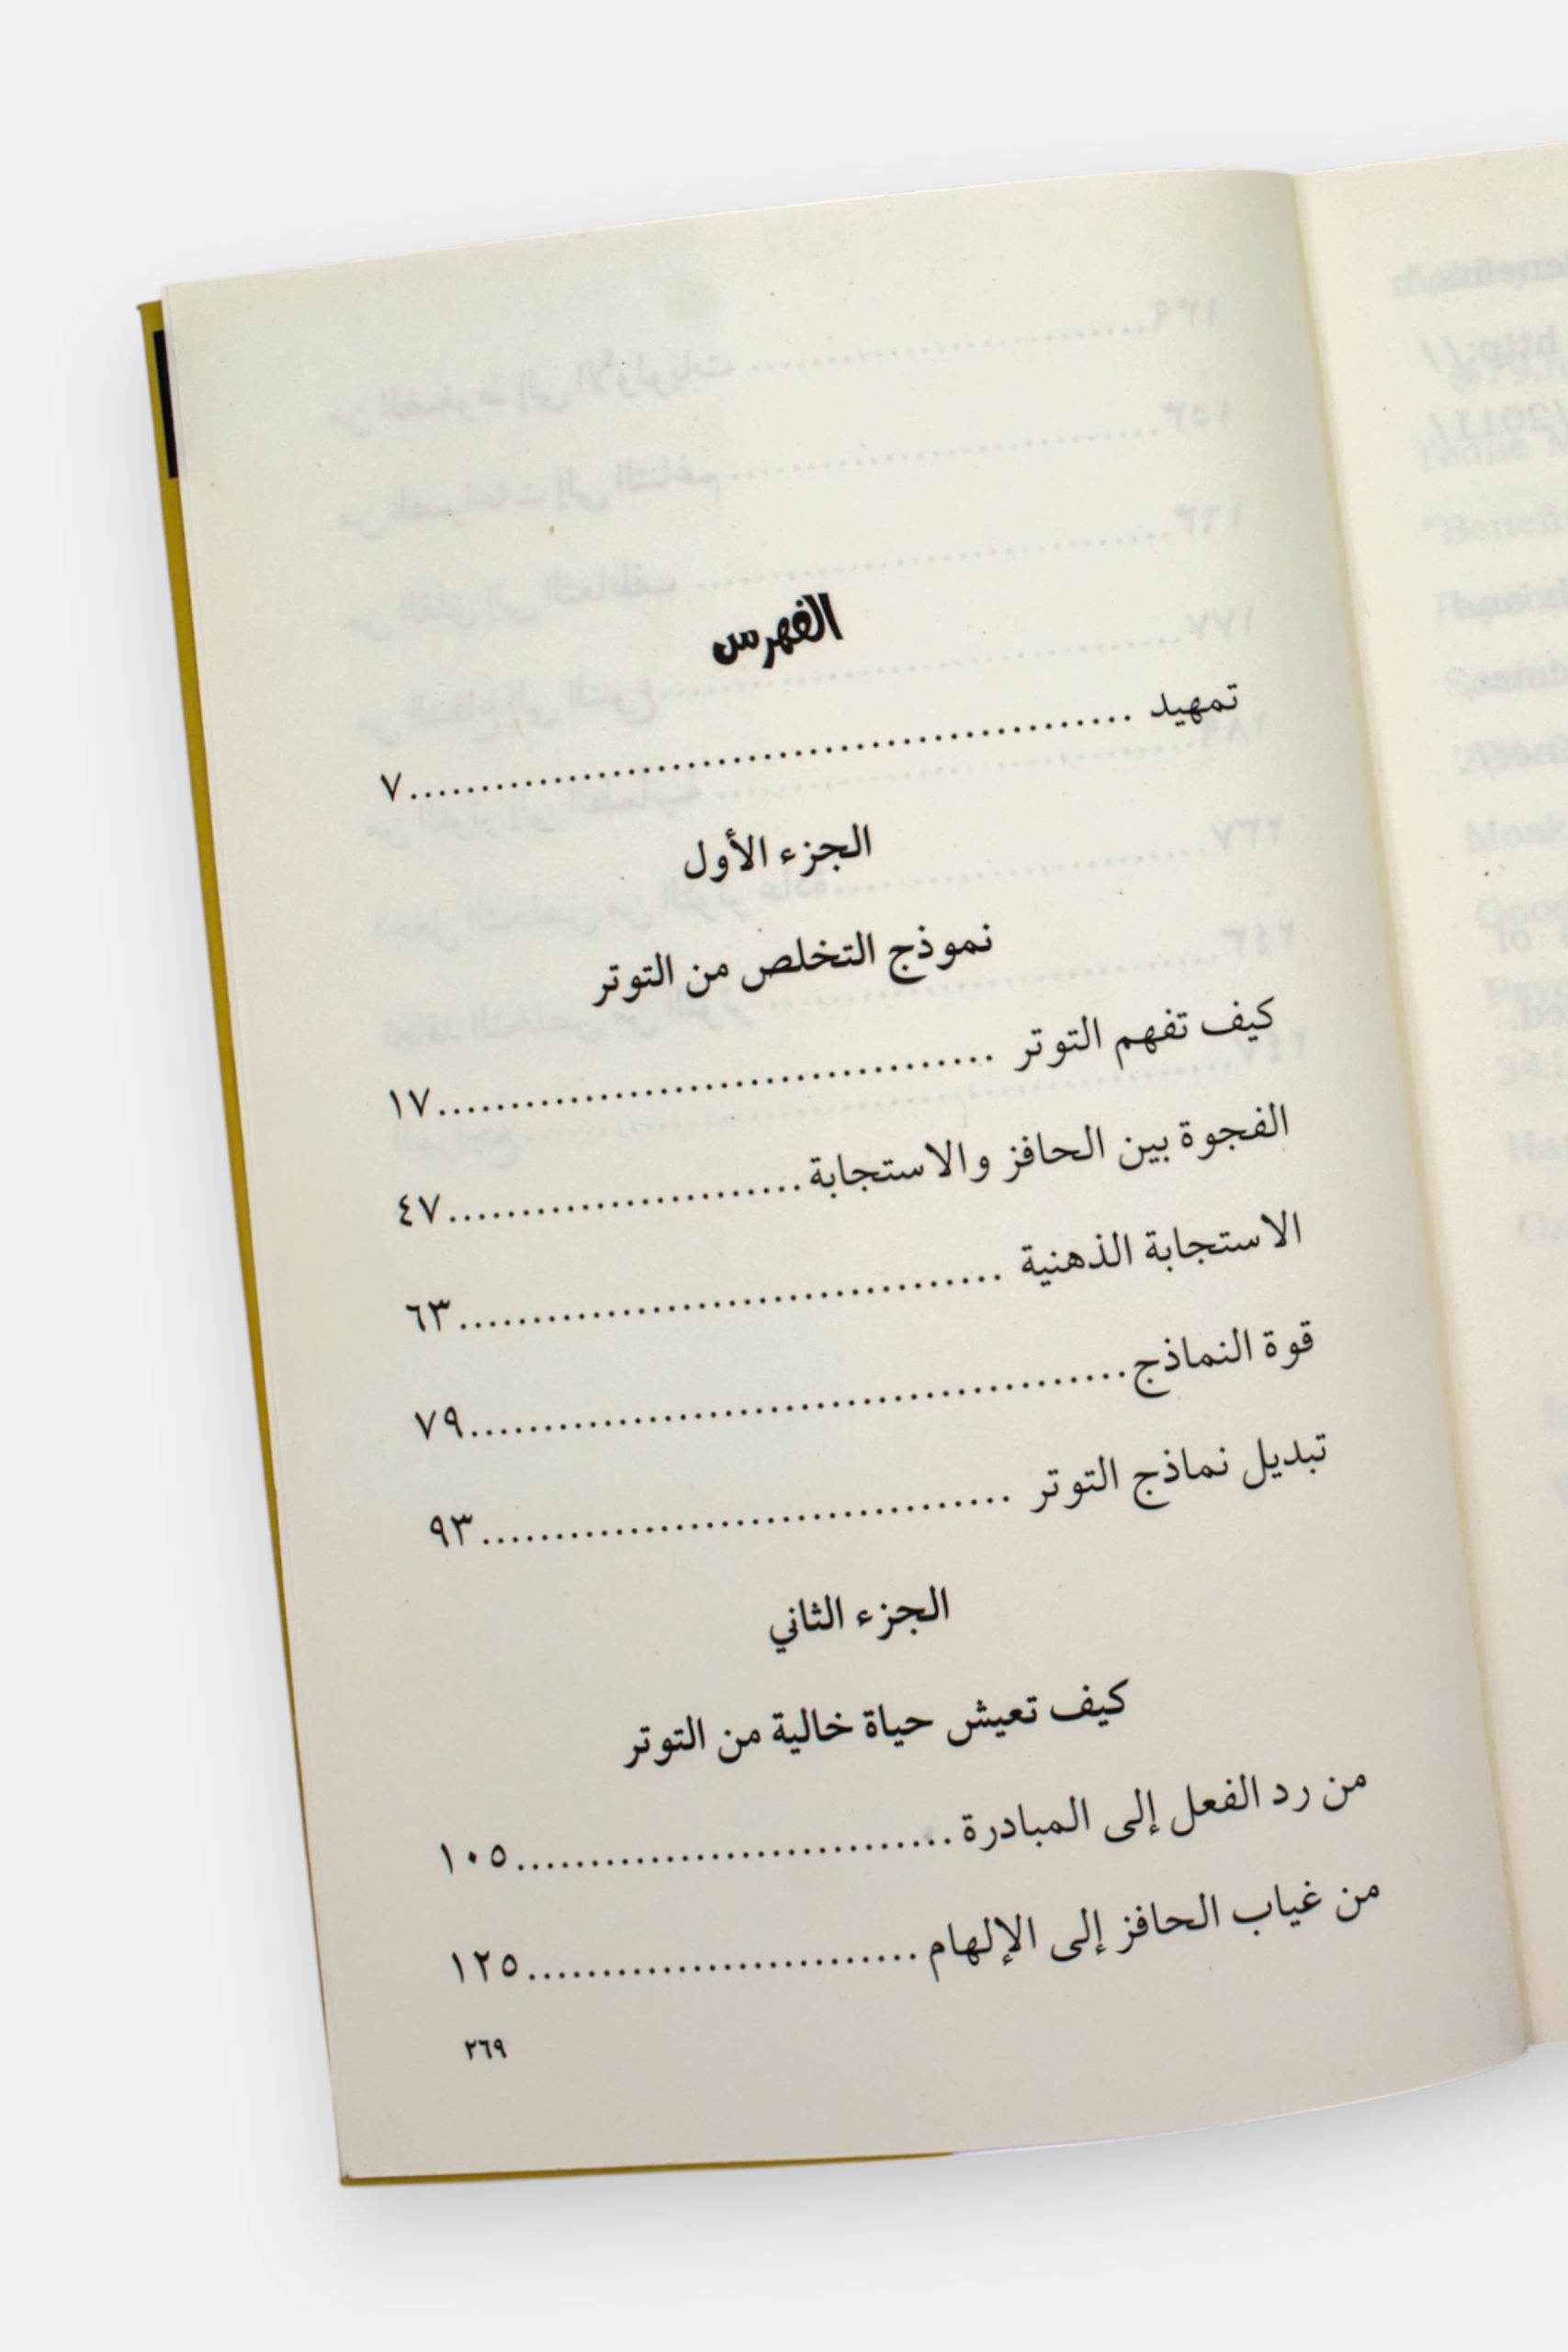 الفهرس
تمهيد ................................................٧
الجزء الأول
نموذج التخلص من التوتر
كيف تفهم التوتر ......................................١٧
الفجوة بين الحافز والاستجابة........................٤٧
الاستجابة الذهنية .....................................٦٣
قوة النماذج............................................٧٩
تبديل نماذج التوتر ....................................٩٣
الجزء الثاني
كيف تعيش حياة خالية من التوتر
من رد الفعل إلى المبادرة..............................١٠٥
من غياب الحافز إلى الإلهام...........................١٢٥
٢٦٩